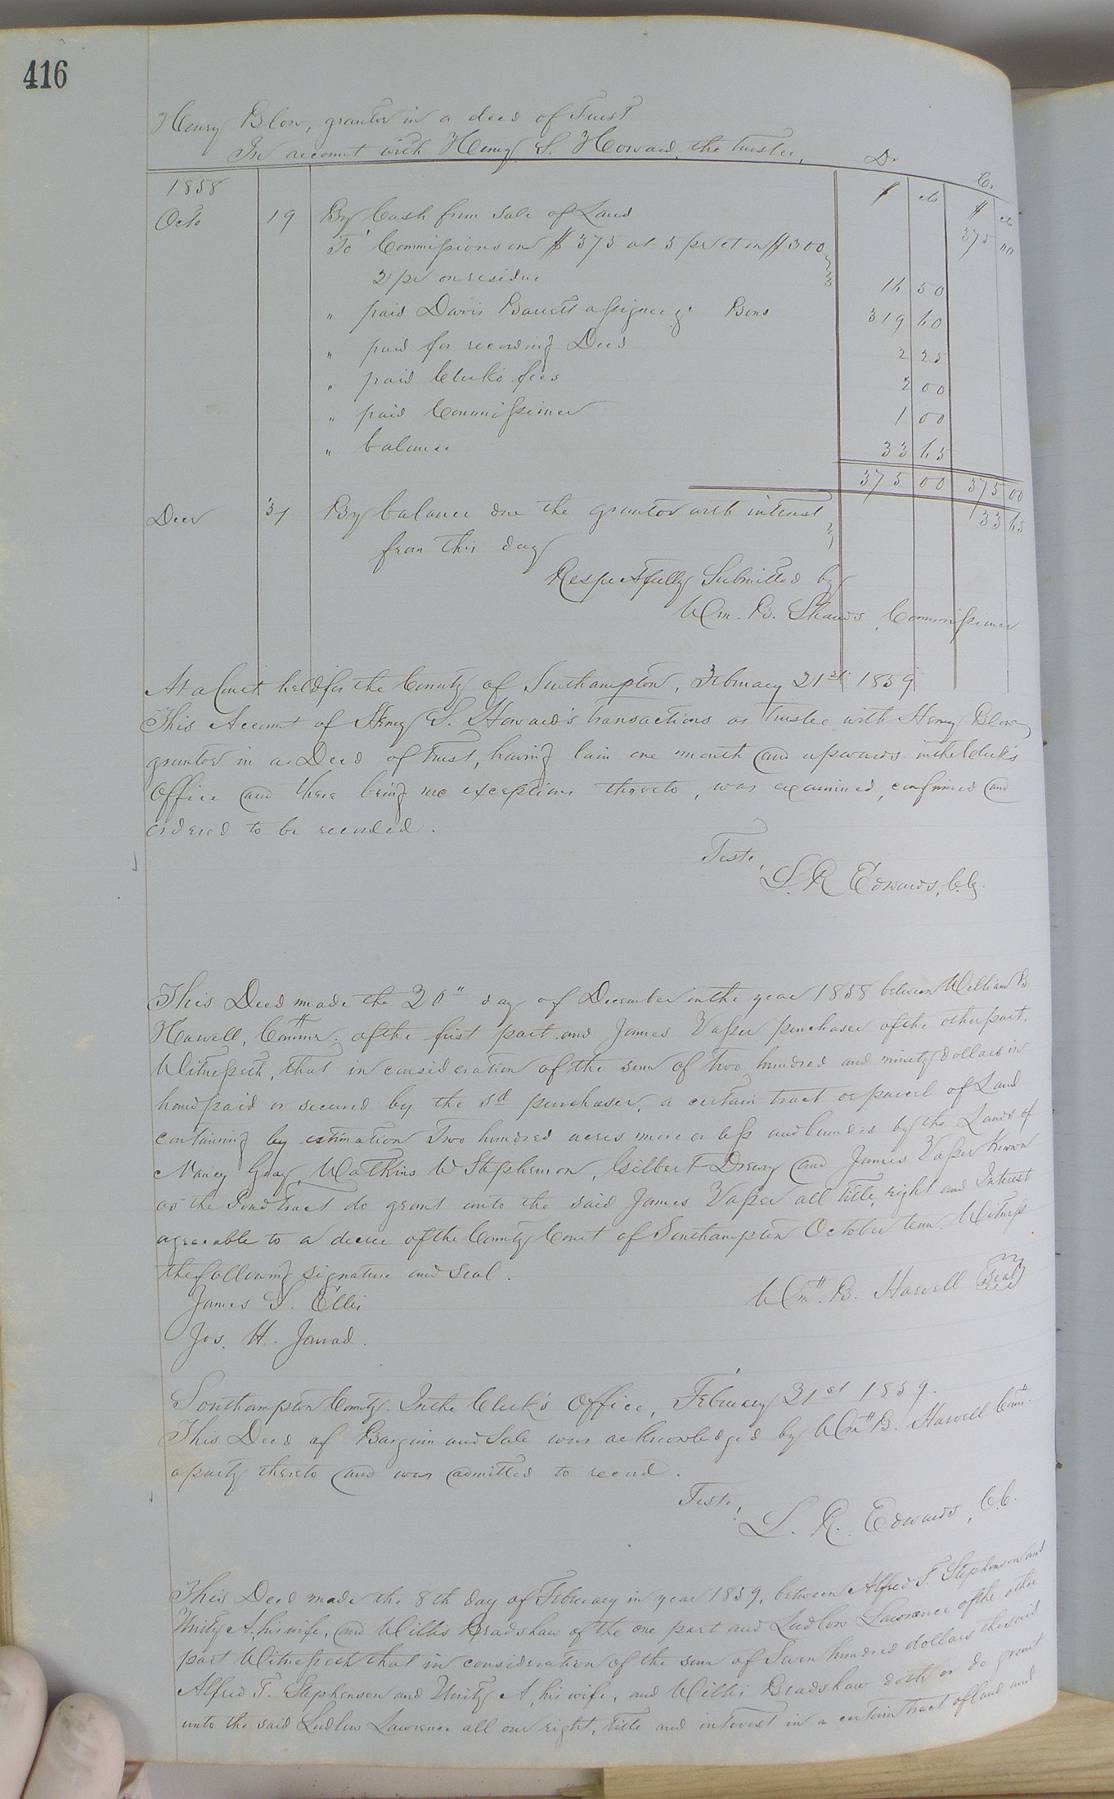 416
Henry Blow, grantor in a deed of Trust
In account with Henry S. Howard, the trustee, Dr Cr
1858 $ cts $ cts
Octo 19 By Cash from sale of Land 375 00
To Commissions on $375 at 5 pr ct on $300
2 pr on residue 16 50
" paid Davis Barrett assignee of Bond 319 60
" paid for recording Deed 2 25
" paid Clerk's fees 2 00
" paid Commissioner 1 00
" balance 33 65
375 00 375 00
Decr 31 By balance due the grantor with interest 33 65
from this day
Respectfully Submitted by
Wm. B. Shands, Commissioner
At a Court held for the County of Southampton, February 21st 1859
This Account of Henry S. Howard's transactions as trustee with Henry Blow
grantor in a Deed of trust, having lain one month and upwards in the Clerk's
Office and there being no exceptions thereto, was examined, confirmed and
ordered to be recorded.
Teste,
L. R. Edwards, C. C.
This Deed made the 20th day of December in the year 1858 between William B
Harvell, Commr. of the first part and James Vasser purchaser of the other part.
Witnesseth, that in consideration of the sum of two hundred and ninety dollars in
hand paid or secured by the sd purchaser, a certain tract or parcel of Land
containing by estimation Two hundred acres more or less and bounded by the Lands of
Nancy Gray, Watkins W Stephenson, Gilbert Drewry and James Vasser Known
as the Pond tract do grant unto the said James Vasser all title, right and Interest
agreeable to a decree of the County Court of Southampton October term. Witness
the following signature and seal.
James S. Ellis Wm. B. Harvell (Seal)
Jos. H. Jarrad.
Southampton County. In the Clerk's Office, February 21st 1859.
This Deed of Bargain and Sale was acknowledged by Wm B. Harvell Comr.
a party thereto and was admitted to record.
Teste,
L. R. Edwards, C. C.
This Deed made the 8th day of February in year 1859, between Alfred T. Stephenson and
Unity A. his wife, and Willis Bradshaw of the one part and Ludlow Lawrence of the other
part Witnesseth that in consideration of the sum of Seven hundred dollars the said
Alfred T. Stephenson and Unity A his wife, and Willis Bradshaw doth or do grant
unto the said Ludlow Lawrence all our right, title and interest in a certain tract of land and